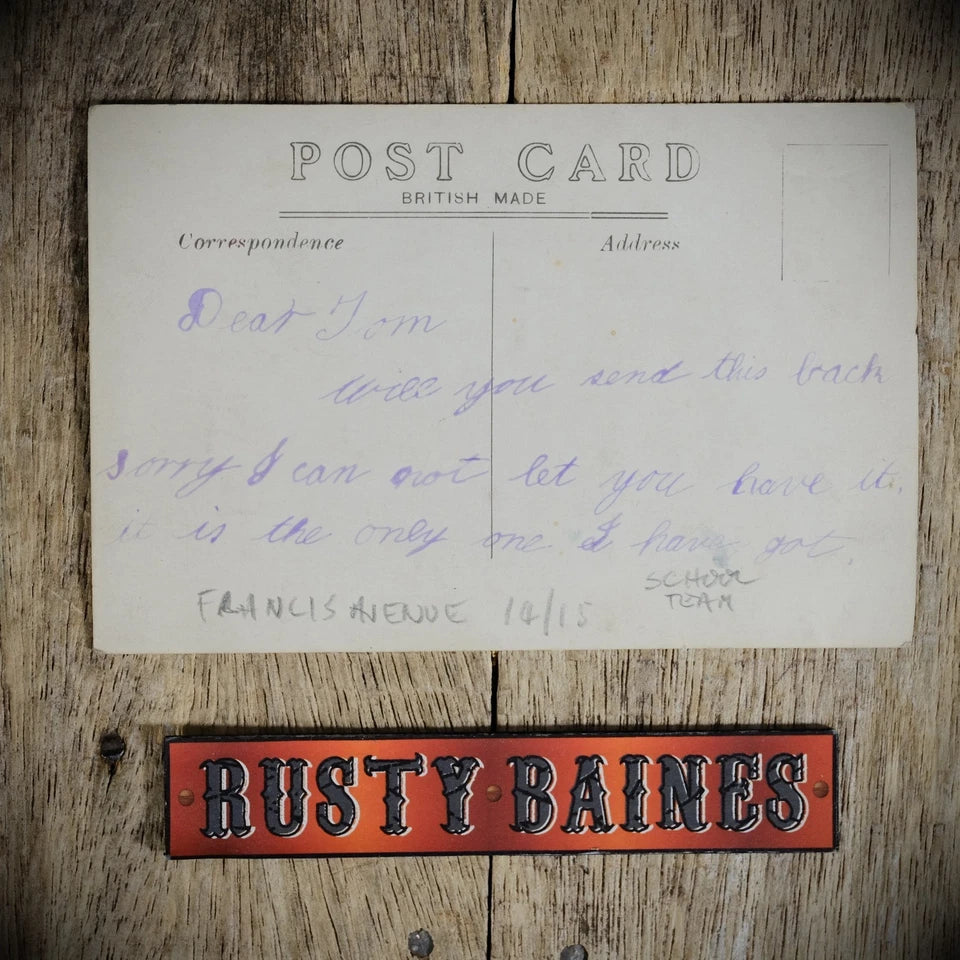 POST CARD
BRITISH MADE
Correspondence
Address
Dear Tom
will you send this back
sorry I can not let you have it.
it is the only one I have got.
FRANCIS AVENUE 14/15
SCHOOL
TEAM
RUSTY BAINES